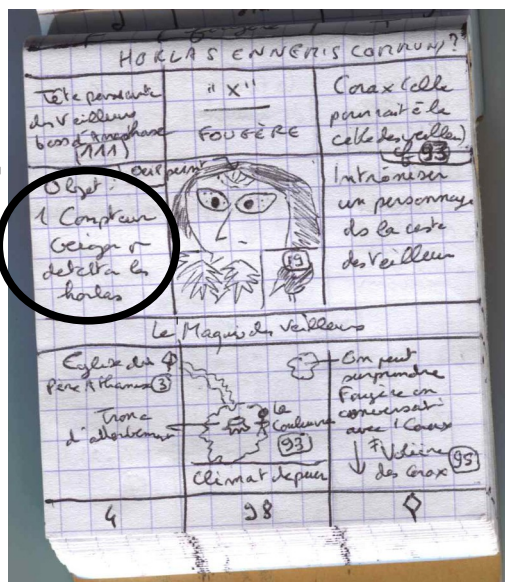 HORLAS ENNEMIS COMMUNS ?
Tête pensante
des Veilleurs
(111)
"X"
FOUGÈRE
Corax (elle
pourrait être
celle des veilleurs)
93
Œil peint
Objet :
1 Compteur
Geiger pr
détecter les
horlas
19
Introniser
un personnage
ds la caste
des Veilleurs
Le Maquis des Veilleurs
Eglise du
Père Athanase 3
Tronc
d'allortement
la
Couleuvre
93
Climat de peur
On peut
surprendre
Fougère en
conversat°
avec 1 Corax
Volière
des Corax 95
4
98